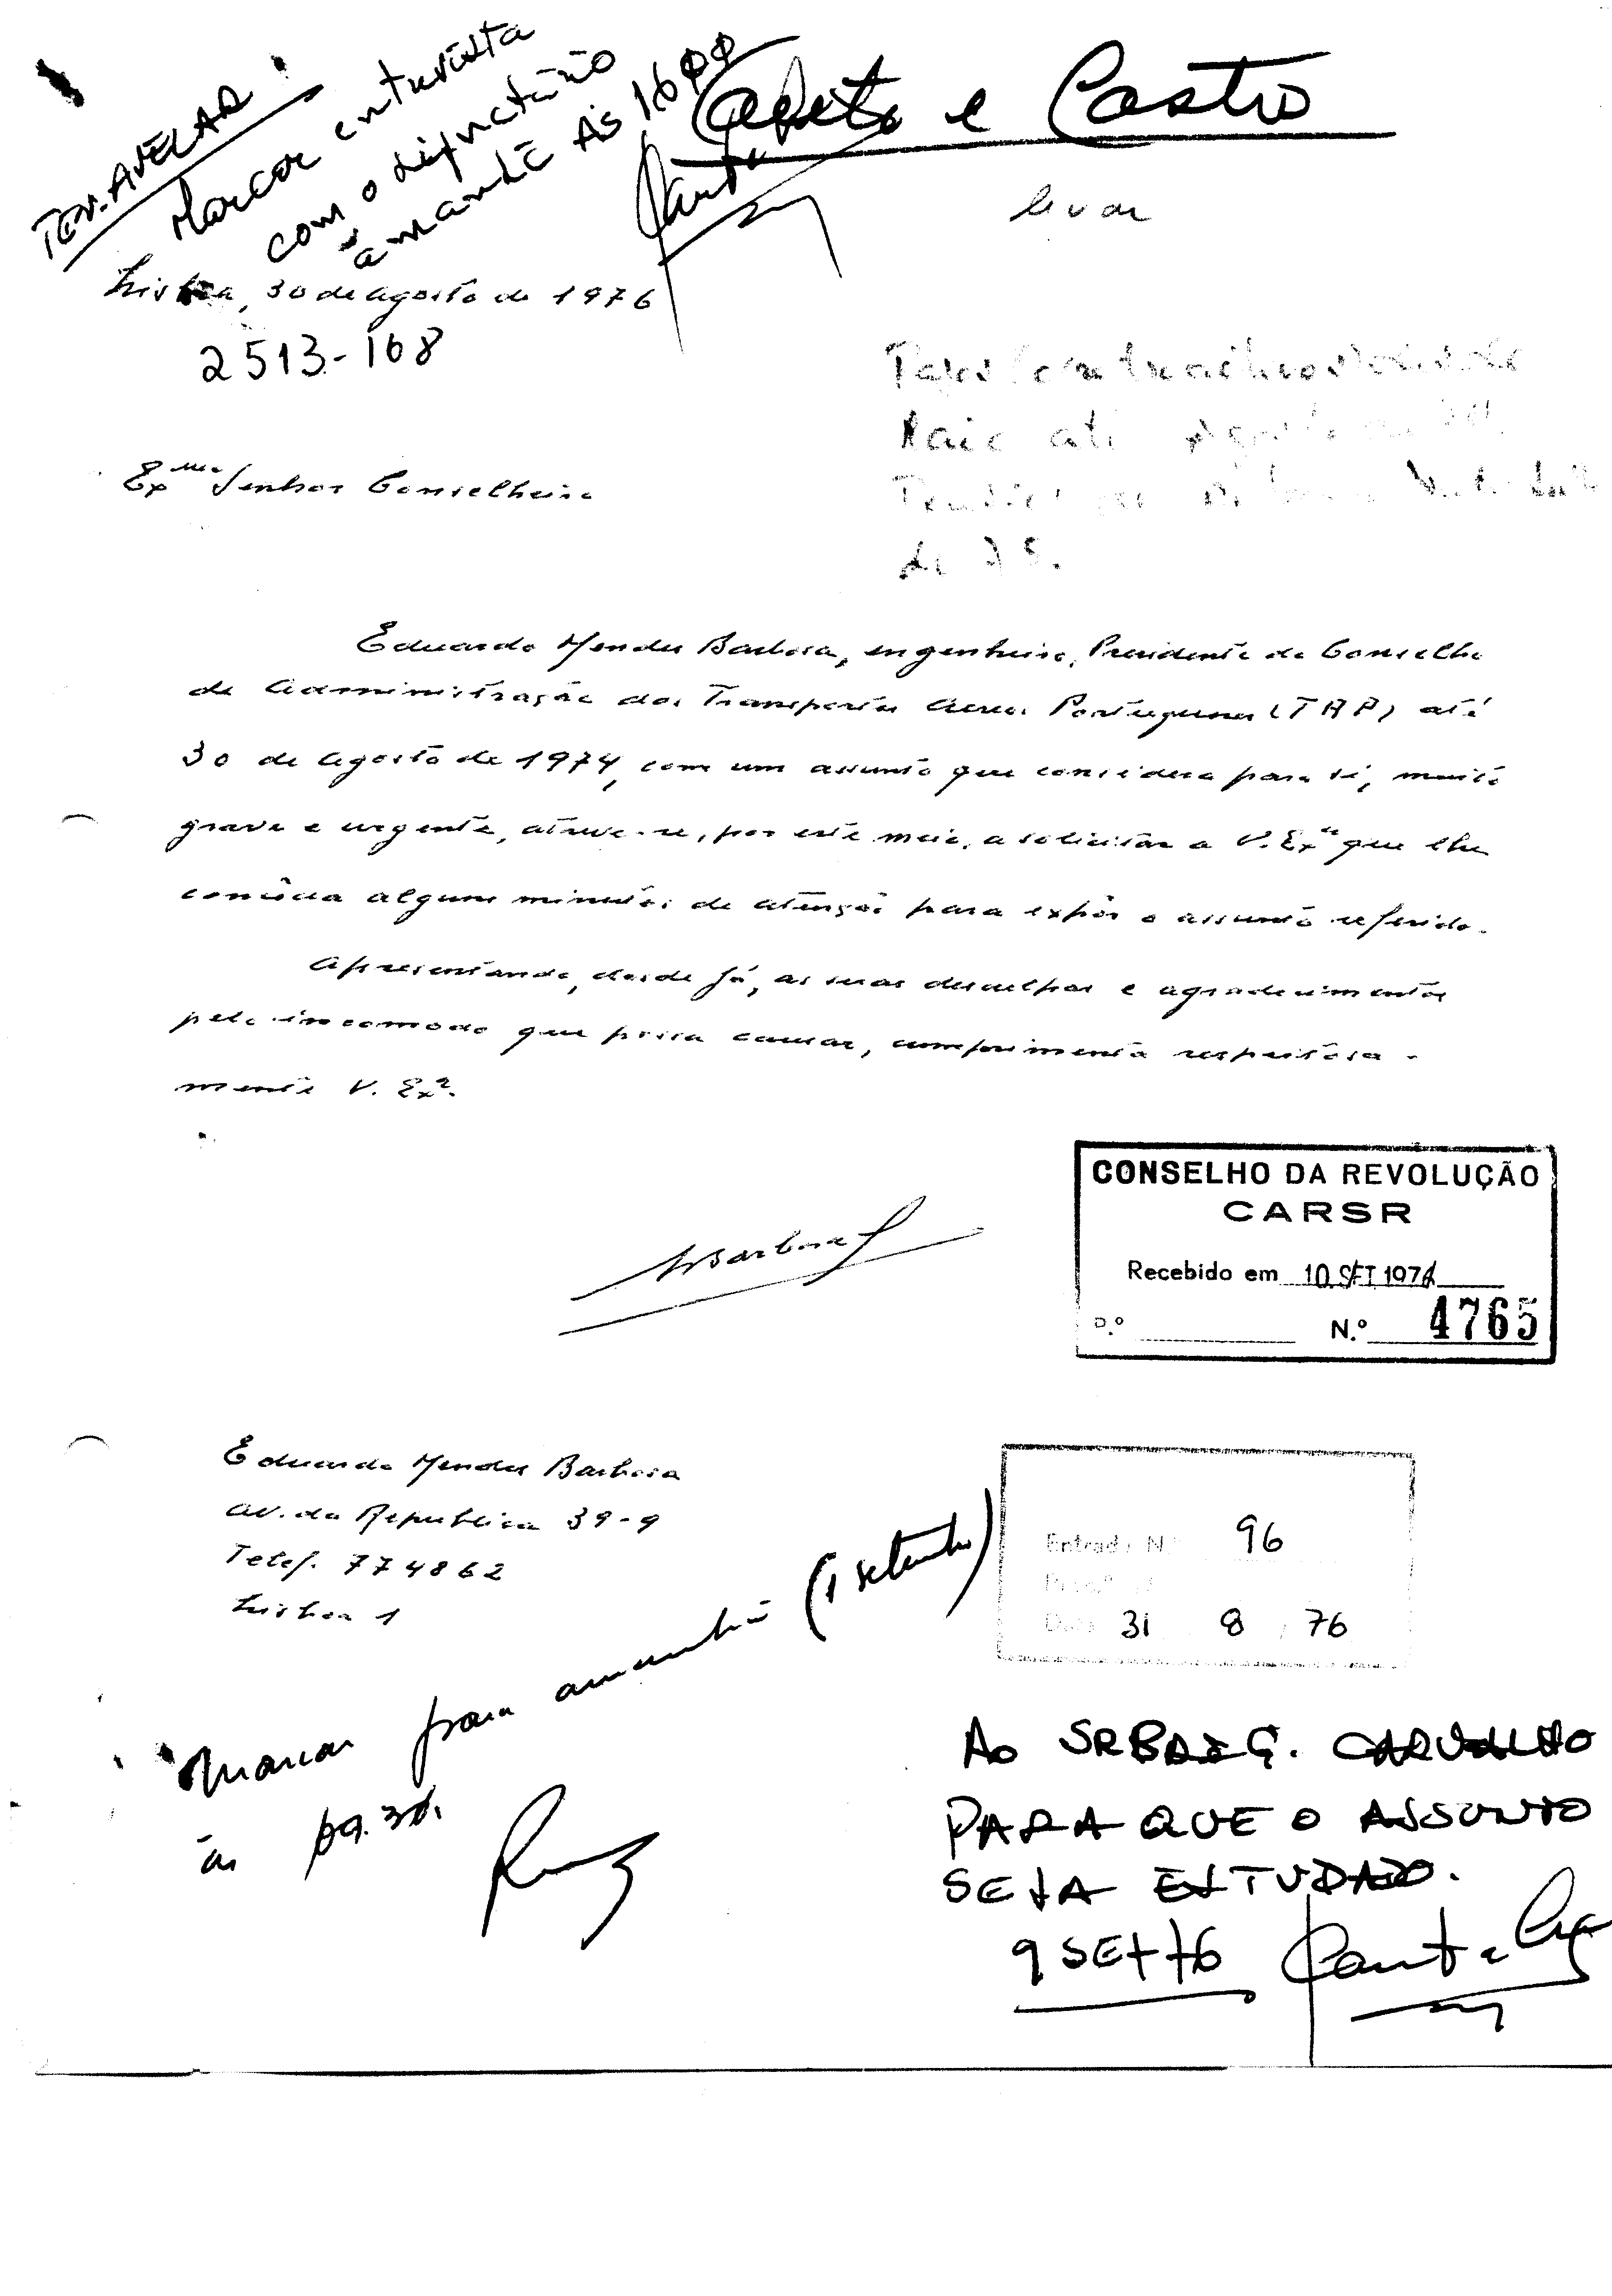 TEN. AVELAR:
Marcar entrevista
com o signatário
amanhã às 16ØØ
e Castro
levar
Lisboa, 30 de agosto de 1976
2513-168
Exmo Senhor Conselheiro
Raio até
de 75.
Eduardo Mendes Barbosa, engenheiro, Presidente do Conselho
de Administração dos Transportes Aereos Portugueses (TAP) até
30 de agosto de 1974, com um assunto que considera para si, muito
grave e urgente, atreve-se, por este meio, a solicitar a V. Exa que lhe
conceda alguns minutos de atenção para expôr o assunto referido.
Apresentando, desde já, as suas desculpas e agradecimentos
pelo incomodo que possa causar, cumprimenta respeitosa-
mente V. Exª.
MBarbosa
CONSELHO DA REVOLUÇÃO
CARSR
Recebido em 10 SET 1976
P.º N.º 4765
Eduardo Mendes Barbosa
Av. da Republica 39-9
Telef. 774862
Lisboa 1
Entrada Nº 96
Proc.º
Data 31 8 / 76
Marcar para amanhã (1 setembro)
às 09.30.
AO SR BRIG. CARVALHO
PARA QUE O ASSUNTO
SEJA ESTUDADO.
9 SET 76